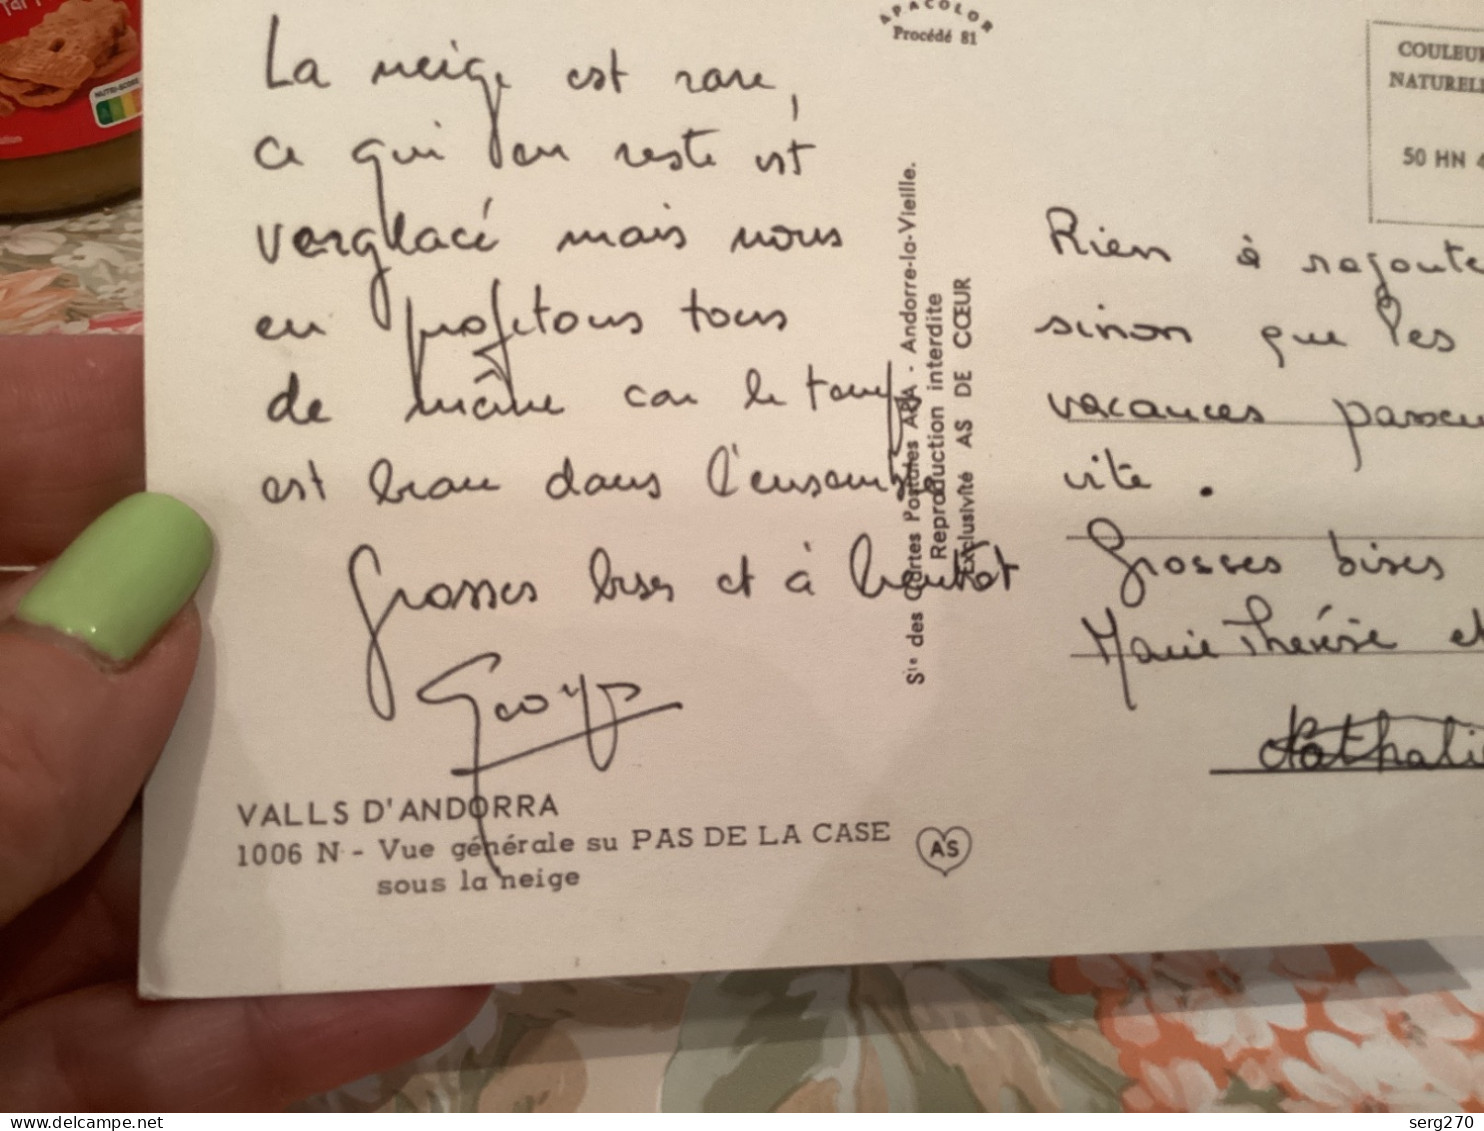 La neige est rare,
ce qui en reste est
verglacé mais nous
en profitons tous
de même car le temps
est beau dans l'ensemble
Grosses bises et à bientôt
APACOLOR
Procédé 81
Ste des Cartes Postales APA - Andorre-la-Vieille.
Reproduction interdite
Exclusivité AS DE CŒUR
COULEUR
NATUREL
50 HN 4
Rien à rajoute
sinon que les
vacances passen
vite.
Grosses bises
Marie Thérèse et
Nathali
VALLS D'ANDORRA
1006 N - Vue générale su PAS DE LA CASE
sous la neige
AS
NUTRI-SCORE
serg270